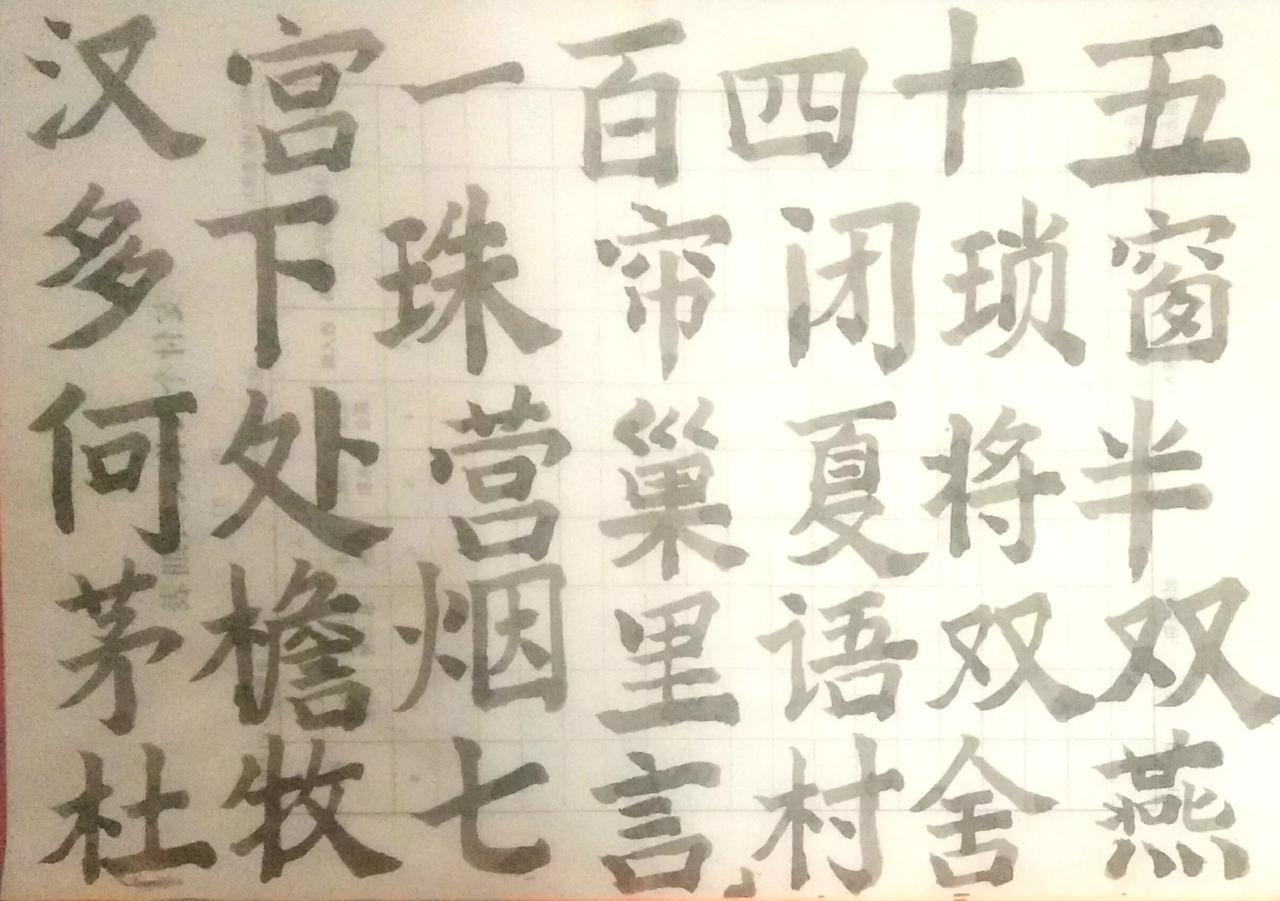 汉宫一百四十五
多下珠帘闭琐窗
何处营巢夏将半
茅檐烟里语双双
杜牧七言村舍燕